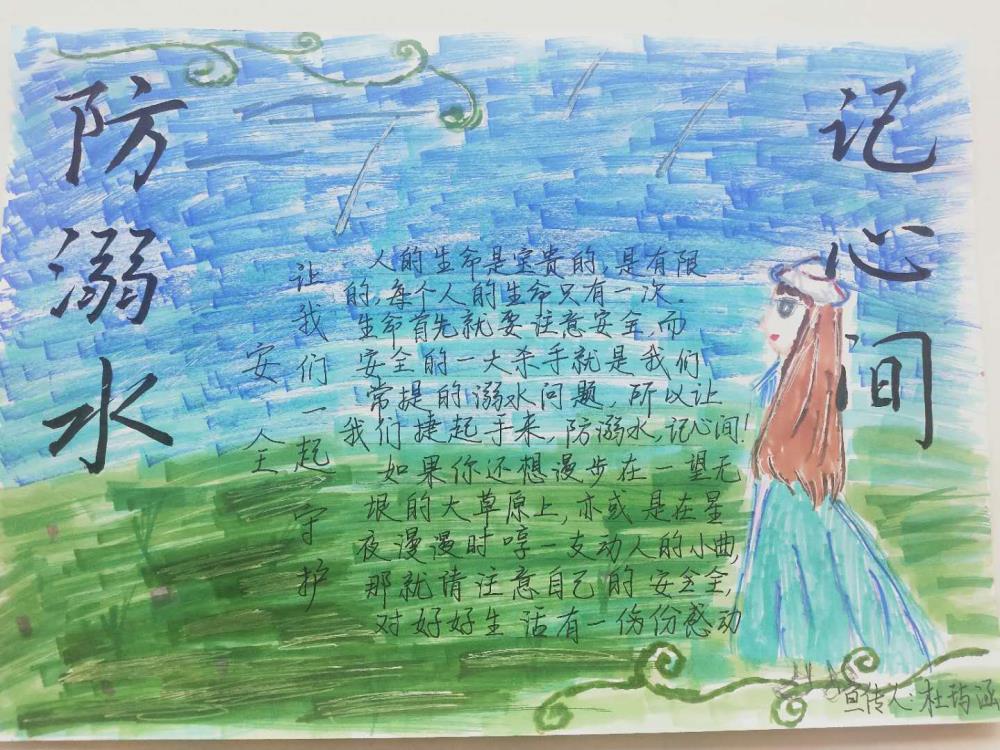 防溺水
记心间
让我们一起守护
安全
人的生命是宝贵的,是有限
的,每个人的生命只有一次.
生命首先就要注意安全,而
安全的一大杀手就是我们
常提的溺水问题,所以让
我们捷起手来,防溺水,记心间!
如果你还想漫步在一望无
垠的大草原上,亦或是在星
夜漫漫时哼一支动人的小曲,
那就请注意自己的安全全,
对好好生活有一份份感动
宣传人:杜玙涵